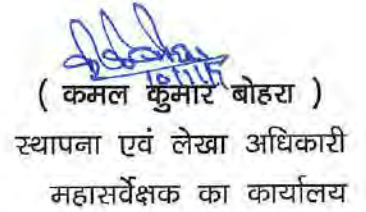 ( कमल कुमार बोहरा )
स्थापना एवं लेखा अधिकारी
महासर्वेक्षक का कार्यालय